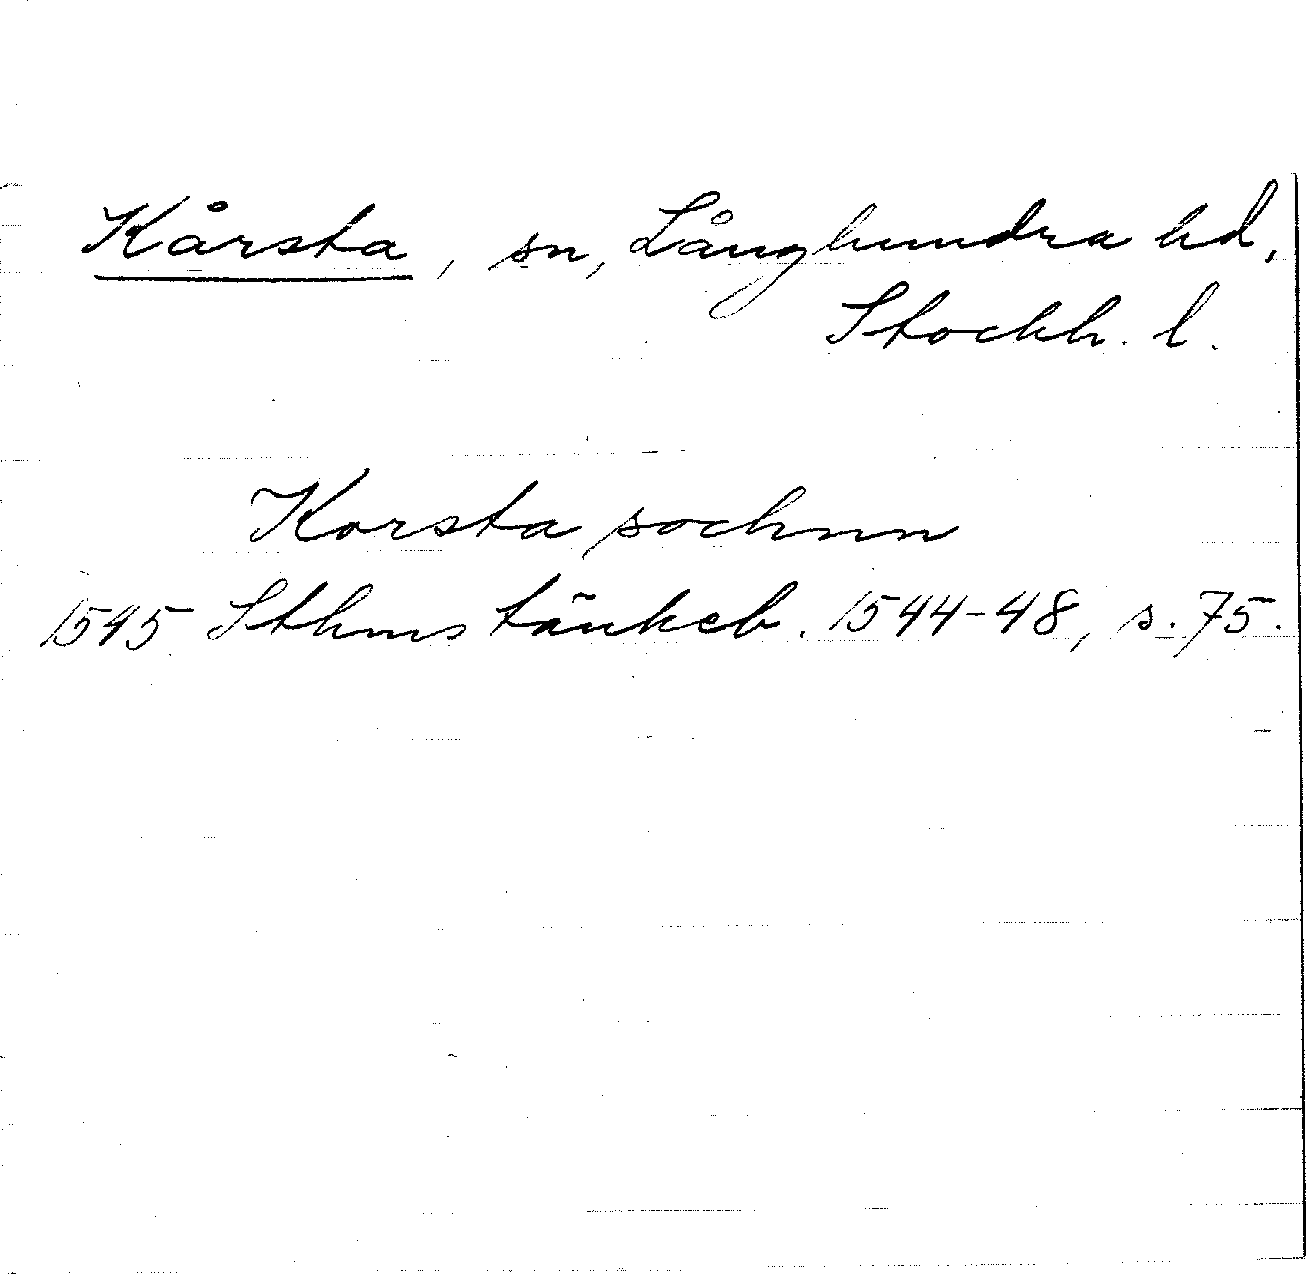 Kårsta, sn, Långhundra hd,
Stockh. l.
Korsta sochnn
1545 Sthms tänkeb. 1544-48, s. 75.